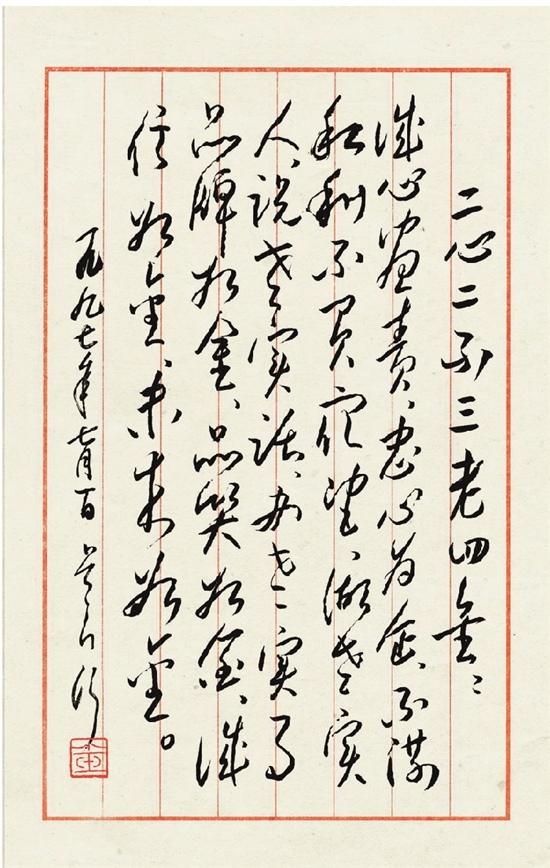 二心二不三老四金:
诚心尽责、忠心为企、不谋
私利不负望、做老实
人、说老实话、办老实事
品牌如金、品质如金、诚
信如金、未来如金。
一九九七年七月一日